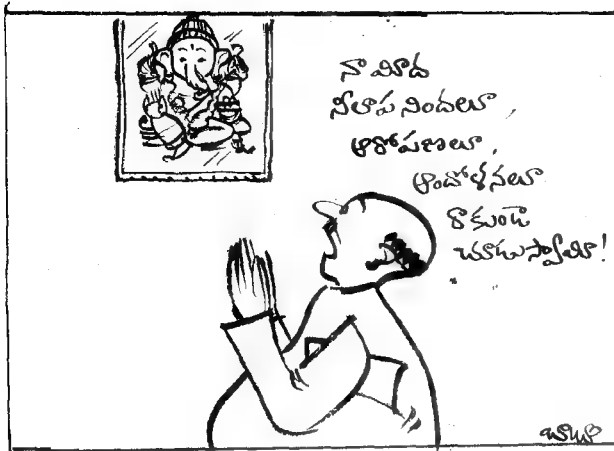 నా మీద
నీలాప నిందలూ,
ఆరోపణలూ,
ఆందోళనలూ
రాకుండా
చూడు స్వామీ!
బాబు